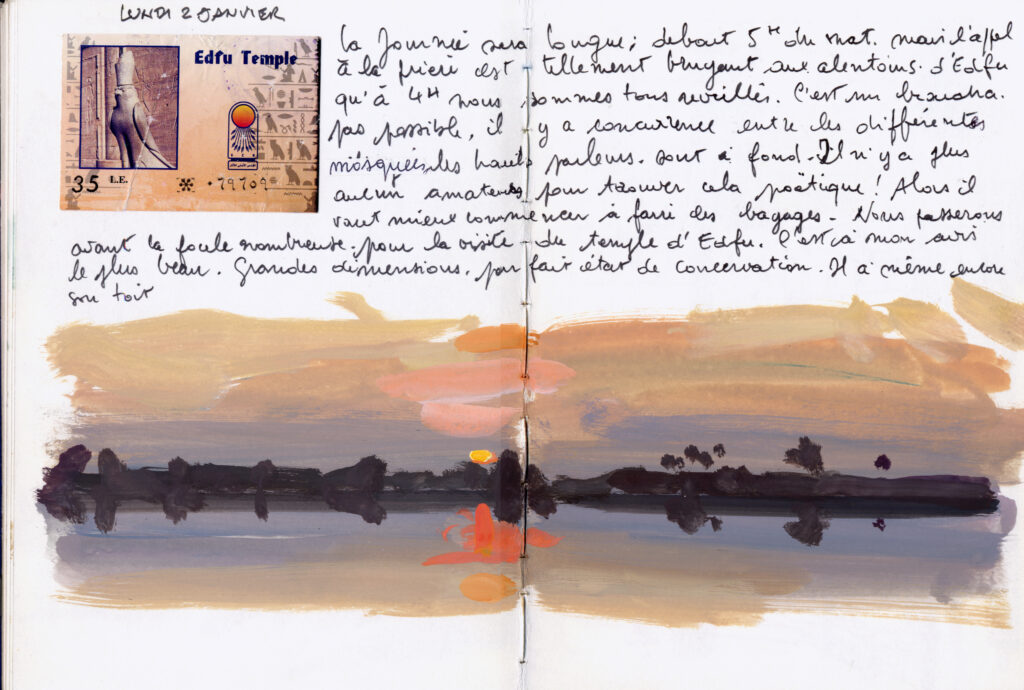 LUNDI 2 JANVIER
Edfu Temple
35 L.E.
79709
la journée sera longue; debout 5H du mat. mais l'appel
à la prière est tellement bruyant aux alentours d'Edfu
qu'à 4H nous sommes tous réveillés. C'est un brouha.
pas possible, il y a concurrence entre les différentes
mosquées, les hauts parleurs sont à fond. Il n'y a plus
aucun amateurs pour trouver cela poëtique! Alors il
vaut mieux commencer à faire des bagages. Nous passerons
avant la foule nombreuse, pour la visite du temple d'Edfu. C'est à mon avis
le plus beau. Grandes dimensions, parfait état de concervation. Il a même encore
son toit